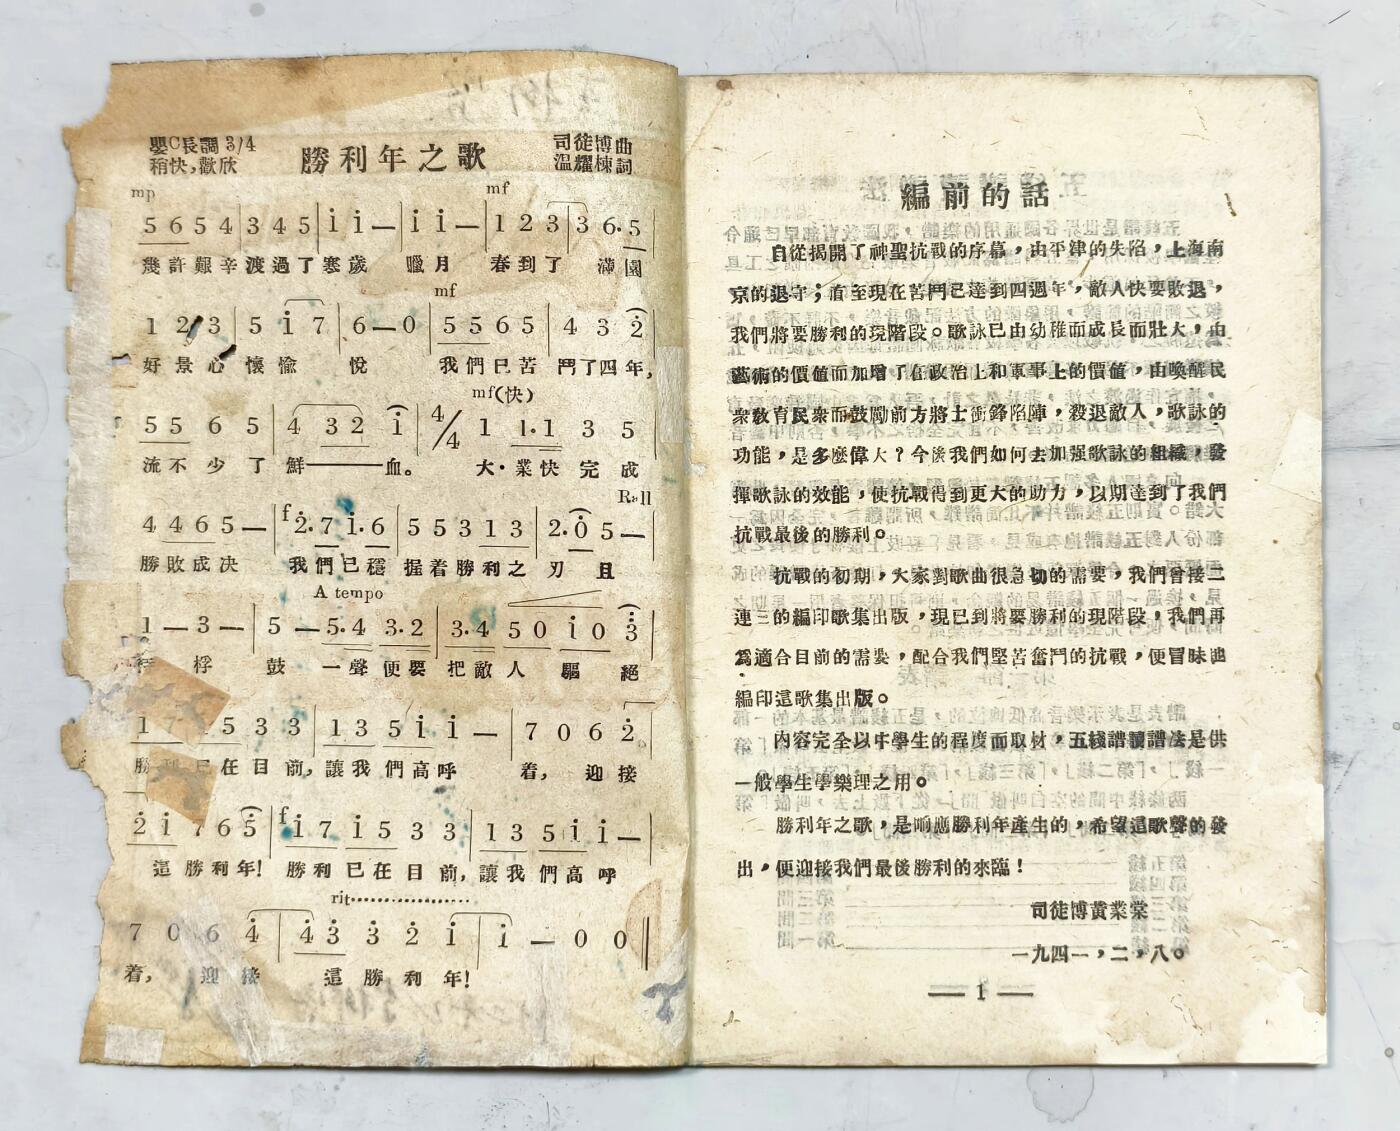 嬰C長調 3/4
稍快,歡欣
勝利年之歌
司徒博曲
溫耀棟詞
mp mf
5 6 5 4 | 3 4 5 | i i — | i i — | 1 2 3 | 3 6· 5
幾許艱辛渡過了寒歲 臘月 春到了 滿園
mf
1 2 3 | 5 i 7 | 6 — 0 | 5 5 6 5 | 4 3 2
好景心懷愉 悅 我們已苦 鬥了四年,
mf(快)
5 5 6 5 | 4 3 2 i | 4/4 1 1·1 3 5
流不少了鮮——血。 大·業快完成
Rall
4 4 6 5 — | f 2·7 i·6 | 5 5 3 1 3 | 2·0 5 —
勝敗成決 我們已穩握着勝利之刃且
A tempo
1 — 3 — | 5 — 5·4 3·2 | 3·4 5 0 i 0 3
桴 鼓 一聲便要把敵人驅絕
1 7 5 3 3 | 1 3 5 i i — | 7 0 6 2
勝利已在目前,讓我們高呼 着,迎接
2 i 7 6 5 | f i 7 i 5 3 3 | 1 3 5 i i —
這勝利年!勝利已在目前,讓我們高呼
rit
7 0 6 4 | 4 3 3 2 i | i — 0 0
着, 迎接 這勝利年!
編前的話
自從揭開了神聖抗戰的序幕,由平津的失陷,上海南
京的退守;直至現在苦鬥已達到四週年,敵人快要敗退,
我們將要勝利的現階段。歌詠已由幼稚而成長而壯大,由
藝術的價值而加增了在政治上和軍事上的價值,由喚醒民
衆敎育民衆而鼓勵前方將士衝鋒陷陣,殺退敵人,歌詠的
功能,是多麼偉大?今後我們如何去加强歌詠的組織,發
揮歌詠的效能,使抗戰得到更大的助力,以期達到了我們
抗戰最後的勝利。
抗戰的初期,大家對歌曲很急切的需要,我們曾接二
連三的編印歌集出版,現已到將要勝利的現階段,我們再
爲適合目前的需要,配合我們堅苦奮鬥的抗戰,便冒昧地
編印這歌集出版。
内容完全以中學生的程度而取材,五綫譜讀譜法是供
一般學生學樂理之用。
勝利年之歌,是响應勝利年產生的,希望這歌聲的發
出,便迎接我們最後勝利的來臨!
司徒博黃業棠
一九四一,二,八。
— 1 —